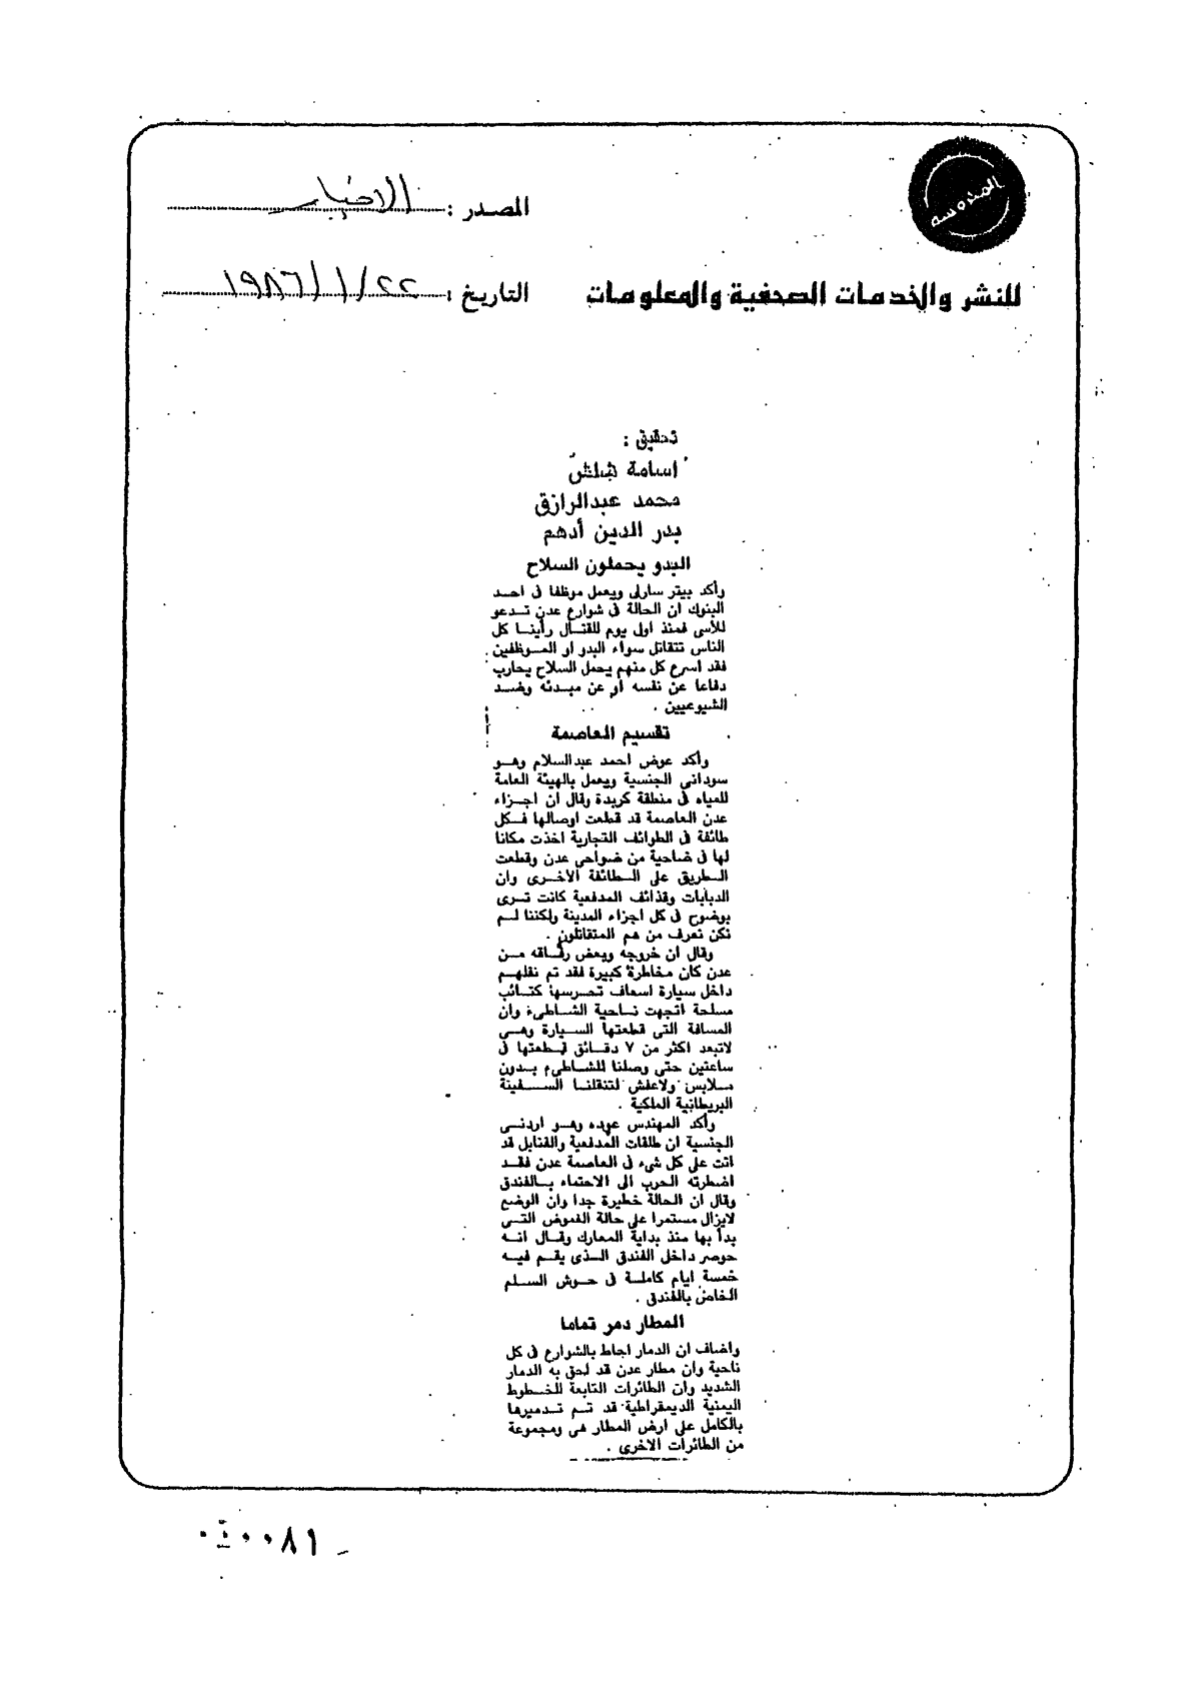 المصدر : الاخبار
للنشر والخدمات الصحفية والمعلومات
التاريخ : ٢٢/١/١٩٨٦
تحقيق :
اسامة شلش
محمد عبدالرازق
بدر الدين أدهم
البدو يحملون السلاح
وأكد بيتر سارلى ويعمل موظفا فى احد
البنوك ان الحالة فى شوارع عدن تدعو
للأسى فمنذ اول يوم للقتال رأينا كل
الناس تتقاتل سواء البدو او الموظفين
فقد اسرع كل منهم يحمل السلاح يحارب
دفاعا عن نفسه او عن مبدئه وضد
الشيوعيين .
تقسيم العاصمة
وأكد عوض احمد عبدالسلام وهو
سودانى الجنسية ويعمل بالهيئة العامة
للمياه فى منطقة كريدة وقال ان اجزاء
عدن العاصمة قد قطعت اوصالها فكل
طائفة فى الطوائف التجارية اخذت مكانا
لها فى ضاحية من ضواحى عدن وقطعت
الطريق على الطائفة الاخرى وان
الدبابات وقذائف المدفعية كانت ترى
بوضوح فى كل اجزاء المدينة ولكننا لم
نكن نعرف من هم المتقاتلون .
وقال ان خروجه وبعض رفاقه من
عدن كان مخاطرة كبيرة فقد تم نقلهم
داخل سيارة اسعاف تحرسها كتائب
مسلحة اتجهت ناحية الشاطىء وان
المسافة التى قطعتها السيارة وهى
لاتبعد اكثر من ٧ دقائق قطعتها فى
ساعتين حتى وصلنا للشاطىء بدون
ملابس ولاعفش لتنقلنا السفينة
البريطانية الملكية .
وأكد المهندس عوده وهو اردنى
الجنسية ان طلقات المدفعية والقنابل قد
اتت على كل شىء فى العاصمة عدن فقد
اضطرته الحرب الى الاحتماء بالفندق
وقال ان الحالة خطيرة جدا وان الوضع
لايزال مستمرا على حالة الغموض التى
بدأ بها منذ بداية المعارك وقال انه
حوصر داخل الفندق الذى يقم فيه
خمسة ايام كاملة فى حوش السلم
الخاص بالفندق .
المطار دمر تماما
واضاف ان الدمار احاط بالشوارع فى كل
ناحية وان مطار عدن قد لحق به الدمار
الشديد وان الطائرات التابعة للخطوط
اليمنية الديمقراطية قد تم تدميرها
بالكامل على ارض المطار هى ومجموعة
من الطائرات الاخرى .